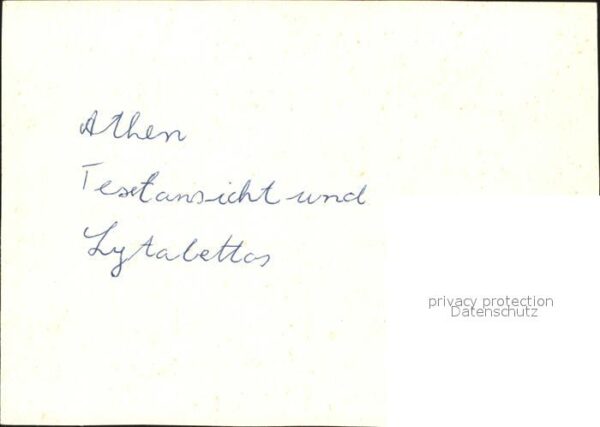 Athen
Tesetansicht und
Lytabettos
privacy protection
Datenschutz